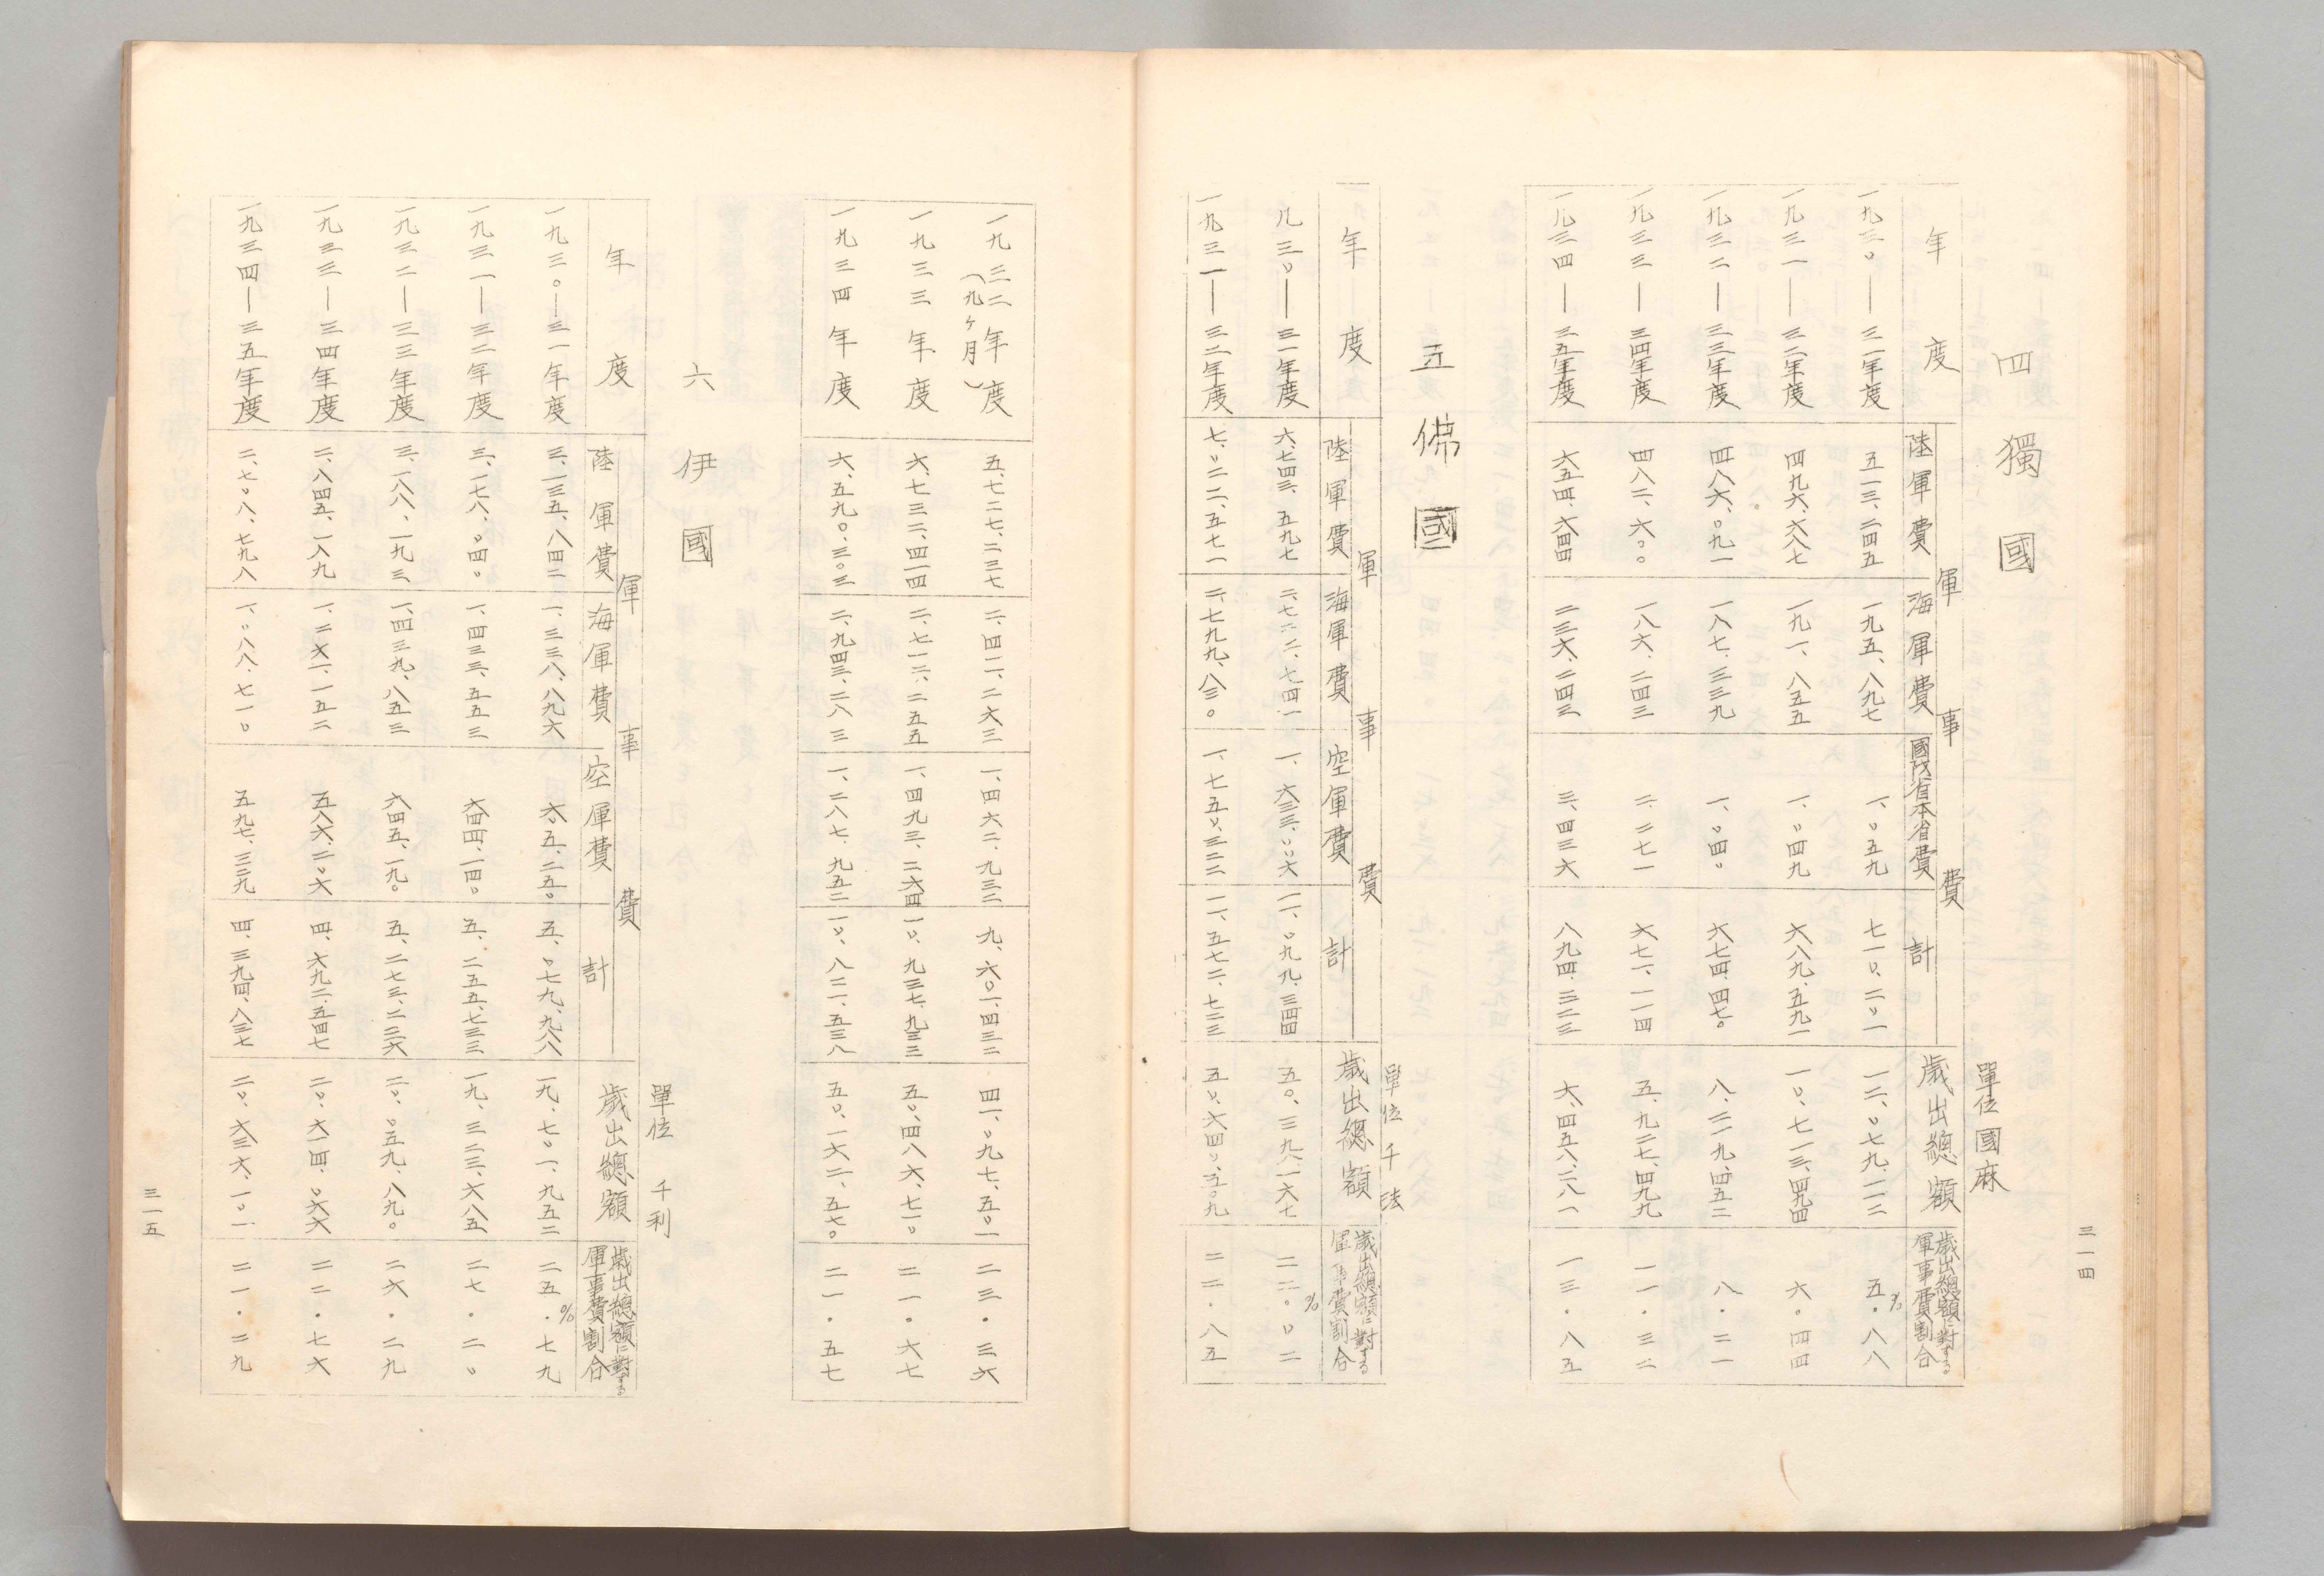 三一四
四 獨國
單位國麻
年度 軍事費 陸軍費 海軍費 國防省本省費 計 歳出總額 歳出總額に對する軍事費割合
一九三〇―三一年度 五一三、二四五 一九五、八九七 一、〇五九 七一〇、二〇一 一二、〇七九、一一二 五・八八%
一九三一―三二年度 四九六、六八七 一九一、八五五 一、〇四九 六八九、五九一 一〇、七一三、四九四 六・四四
一九三二―三三年度 四八六、〇九一 一八七、三三九 一、〇四〇 六七四、四七〇 八、二一九、四五二 八・二一
一九三三―三四年度 四八二、六〇〇 一八六、二四三 二、二七一 六七一、一一四 五、九二七、四九九 一一・三二
一九三四―三五年度 六五四、六四四 二三六、二四三 三、四三六 八九四、三二三 六、四五八、二八一 一三・八五
五 佛國
單位 千法
年度 軍事費 陸軍費 海軍費 空軍費 計 歳出總額 歳出總額に對する軍事費割合
一九三〇―三一年度 六、七四三、五九七 二、七二二、七四一 一、六三三、〇〇六 一一、〇九九、三四四 五〇、三九八、一六七 二二・〇二%
一九三一―三二年度 七、〇二二、五七一 二、七九九、八三〇 一、七五〇、三二二 一一、五七二、七二三 五〇、六四〇、五〇九 二二・八五
一九三二年度(九ヶ月) 五、七二七、二三七 二、四一一、二六三 一、四六二、九三二 九、六〇一、四三二 四一、〇九七、五〇一 二三・三六
一九三三年度 六、七三二、四一四 二、七一二、二五五 一、四九三、二六四 一〇、九三七、九三三 五〇、四八六、七一〇 二一・六七
一九三四年度 六、五九〇、三〇三 二、九四三、二八三 一、二八七、九五二 一〇、八二一、五三八 五〇、一六二、五七〇 二一・五七
六 伊國
單位 千利
年度 軍事費 陸軍費 海軍費 空軍費 計 歳出總額 歳出總額に對する軍事費割合
一九三〇―三一年度 三、一三五、八四二 一、三三八、八九六 六〇五、二五〇 五、〇七九、九八八 一九、七〇一、九五二 二五・七九%
一九三一―三二年度 三、一七八、〇四〇 一、四三三、五五三 六四四、一四〇 五、二五五、七三三 一九、三二三、六八五 二七・二〇
一九三二―三三年度 三、一八八、一九三 一、四三九、八五三 六四五、一九〇 五、二七三、二三六 二〇、〇五九、八九〇 二六・二九
一九三三―三四年度 二、八四五、一八九 一、二六一、一五二 五八六、二〇六 四、六九二、五四七 二〇、六一四、〇六六 二二・七六
一九三四―三五年度 二、七〇八、七九八 一、〇八八、七一〇 五九七、三二九 四、三九四、八三七 二〇、六三六、一〇一 二一・二九
三一五